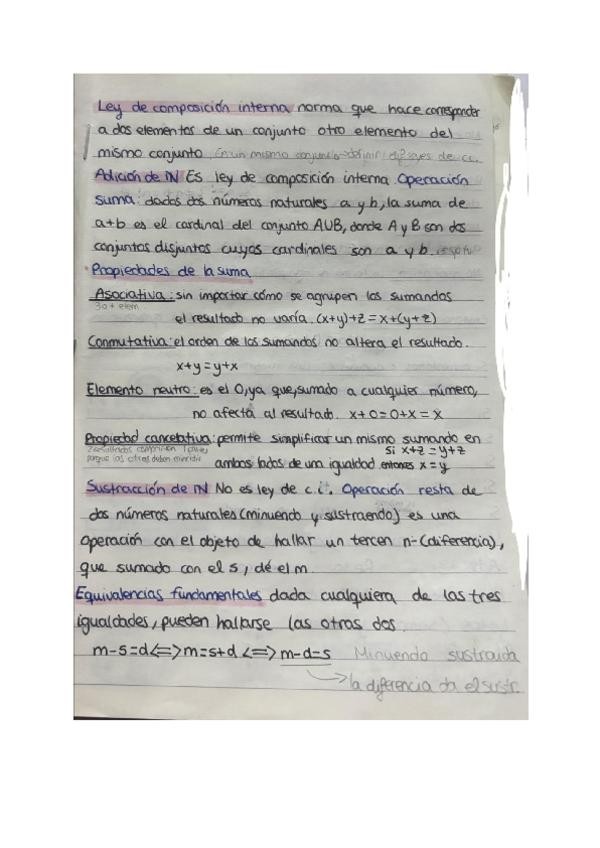 Ley de composición interna norma que hace corresponder
a dos elementos de un conjunto otro elemento del
mismo conjunto. En un mismo conjunto definir leyes de c.i.
Adición de IN Es ley de composición interna Operación
suma: dados dos números naturales a y b, la suma de
a+b es el cardinal del conjunto AUB, donde A y B son dos
conjuntos disjuntos cuyos cardinales son a y b.
Propiedades de la suma
Asociativa: sin importar cómo se agrupen los sumandos
3 o + elem.
el resultado no varía. (x+y)+z=x+(y+z)
Conmutativa: el orden de los sumandos no altera el resultado.
x+y=y+x
Elemento neutro: es el 0, ya que, sumado a cualquier número,
no afecta al resultado. x+0=0+x=x
Propiedad cancelativa: permite simplificar un mismo sumando en
2 resultados comparten 1 parte, si x+z=y+z
porque las otras deben ambos lados de una igualdad entonces x=y
Sustracción de IN No es ley de c.i. Operación resta de
dos números naturales (minuendo y sustraendo) es una
operación con el objeto de hallar un tercen n- (diferencia),
que sumado con el s, dé el m.
Equivalencias fundamentales dada cualquiera de las tres
igualdades, pueden hallarse las otras dos.
m-s=d<=>m=s+d <=>m-d=s Minuendo sustraida
->la diferencia da el sustr.